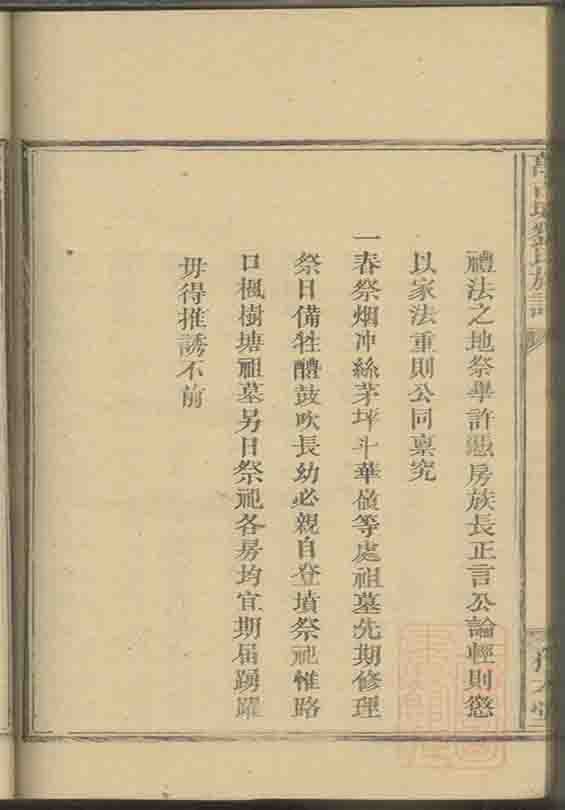 禮法之地祭畢許憑房族長正言公論輕則懲
以家法重則公同禀究
一春祭烟冲絲茅坪斗華嶺等處祖墓先期修理
祭日備牲醴鼓吹長幼必親自登墳祭祀惟路
口楓樹塘祖墓另日祭祀各房均宜期届踴躍
毋得推諉不前